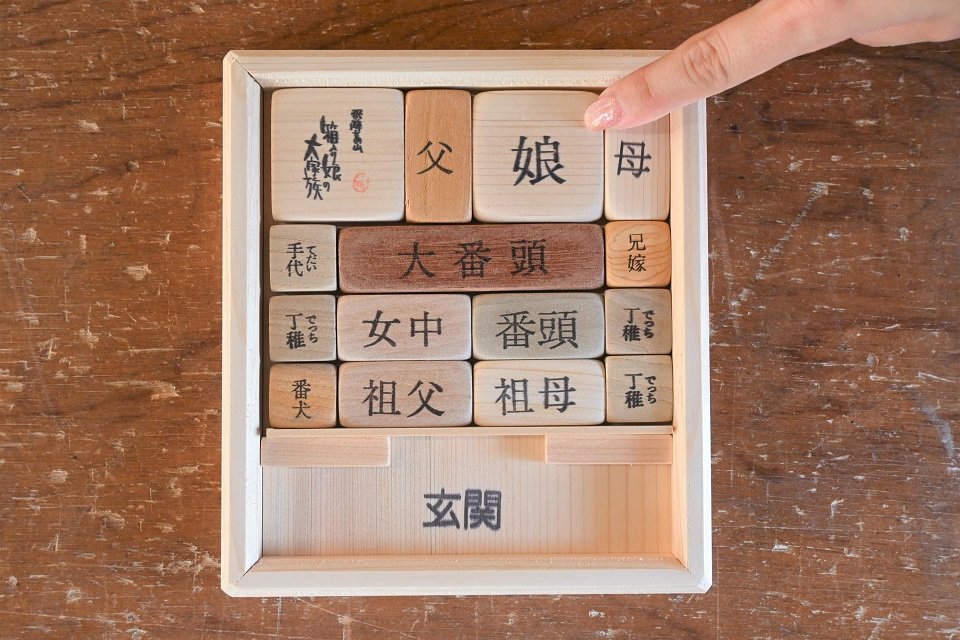 箱入り娘の
大家族
父
娘
母
手代
てだい
大番頭
兄嫁
丁稚
でっち
女中
番頭
丁稚
でっち
番犬
祖父
祖母
丁稚
でっち
玄関